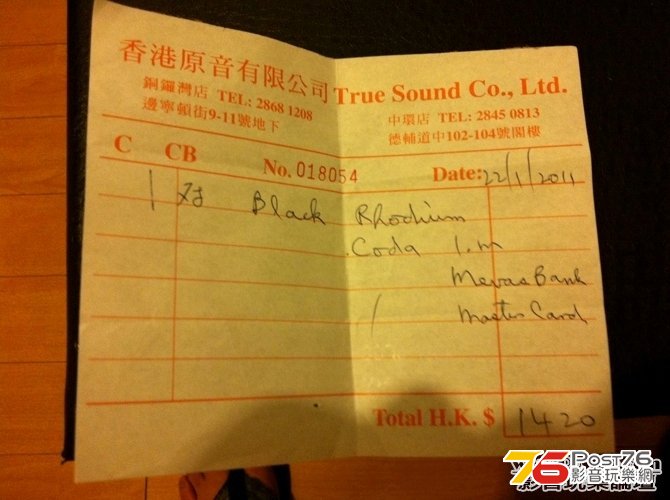 香港原音有限公司 True Sound Co., Ltd.
銅鑼灣店 TEL: 2868 1208
邊寧頓街9-11號地下
中環店 TEL: 2845 0813
德輔道中102-104號閣樓
C CB No. 018054 Date: 22/1/2011
1 对 Black Rhodium
Coda 1.m
MevasBank
/ Master Card
Total H.K. $ 1420
Post76
影音玩樂網